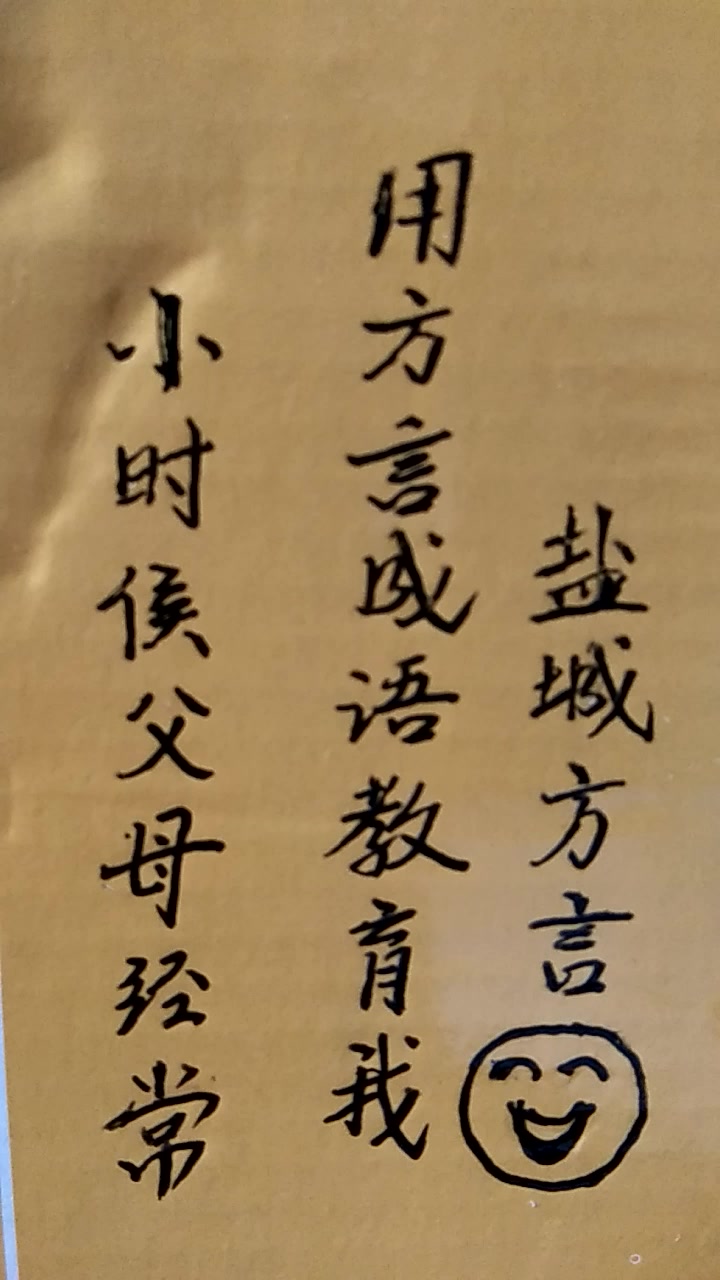 小时侯父母经常
用方言成语教育我
盐城方言